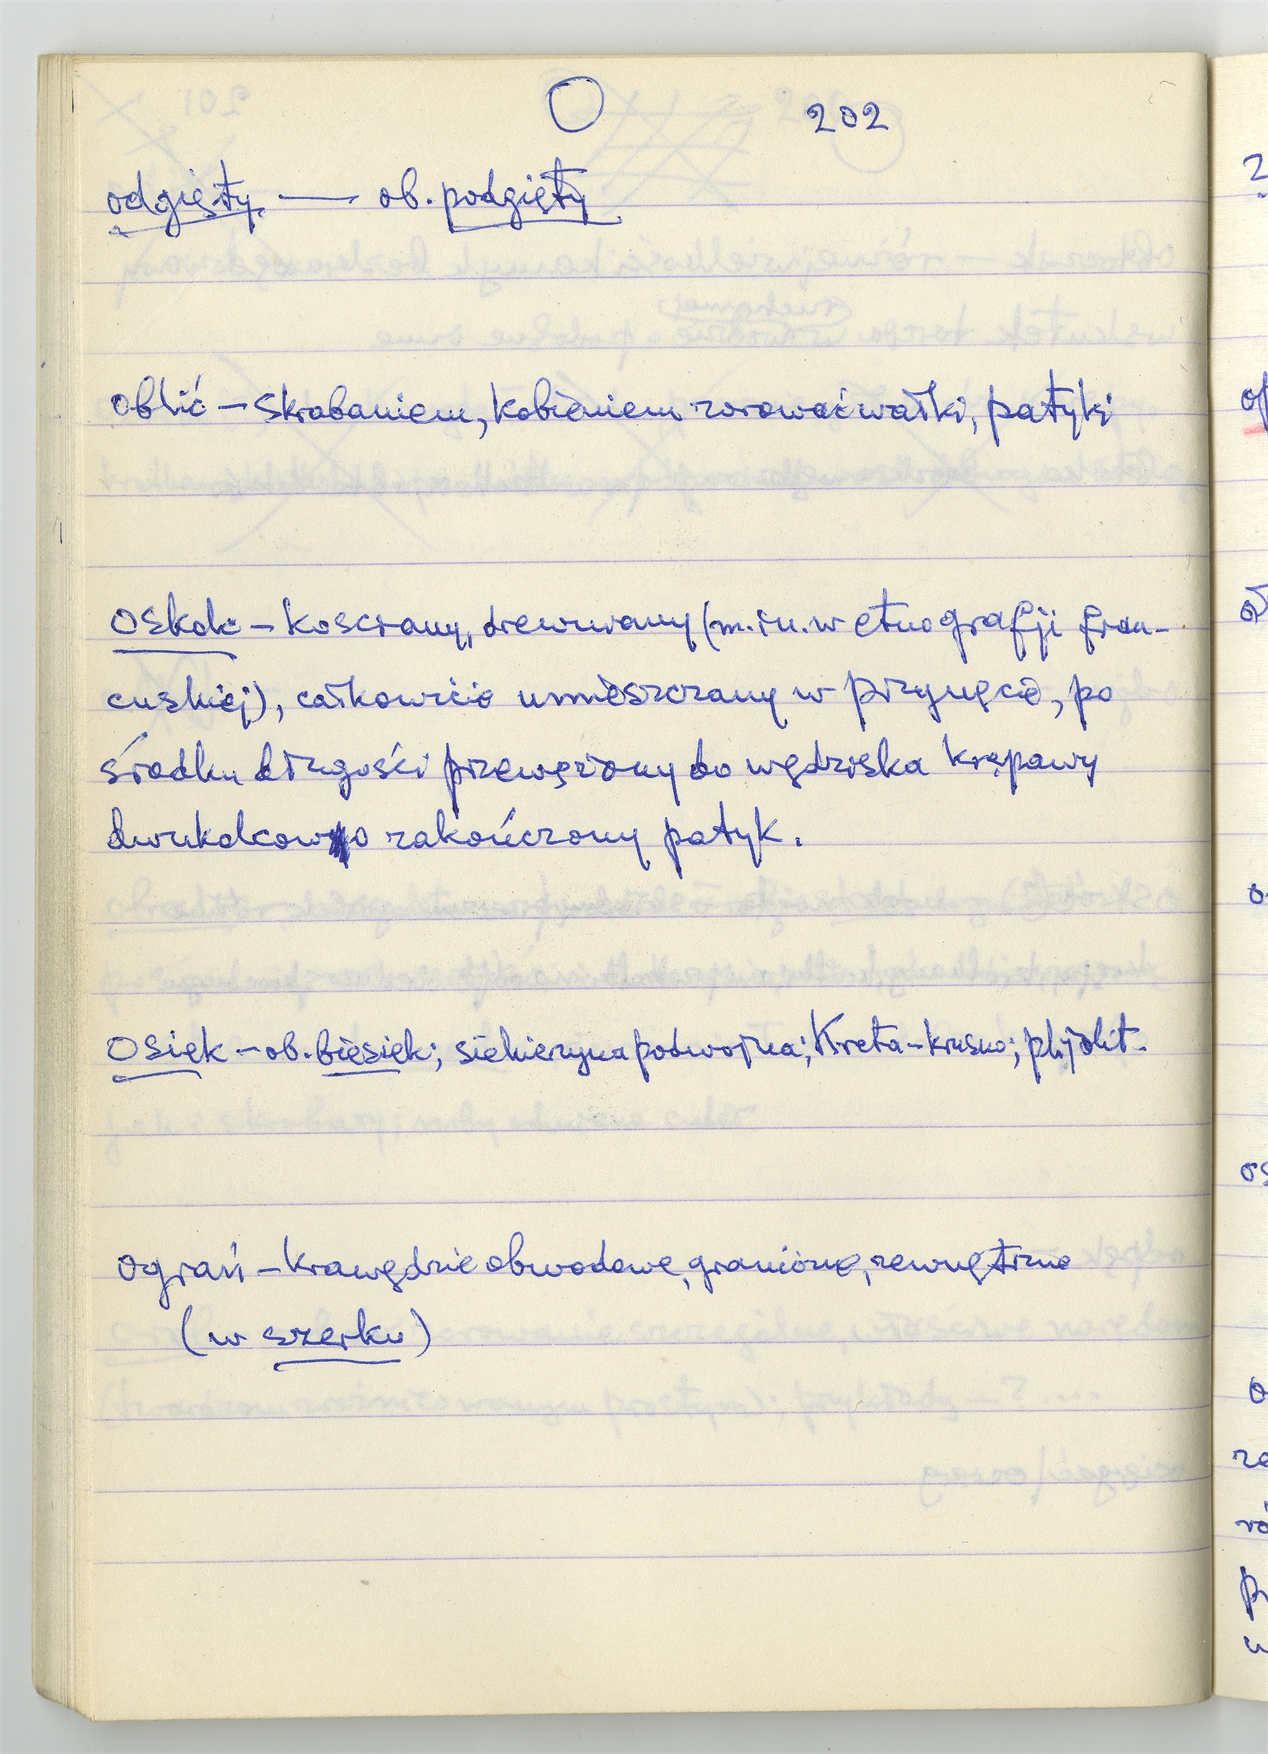 O 202
odgięty — ob. podgięty
Oblić – skrobaniem, kobieniem zorować wałki, patyki
oskolc – kosciany, drewniany (m.in. w etnografji fran-
cuskiej), całkowicie umieszczany w przynęcie, po
środku długości przewęziony do wędziska krępawy
dwukolcowo zakończony patyk.
Osięk – ob. biesięk; siekierzyna podwojna; Kreta – krusno;
Ograń – krawędzie obwodowe, graniczne, zewnętrzne
(w szerku)